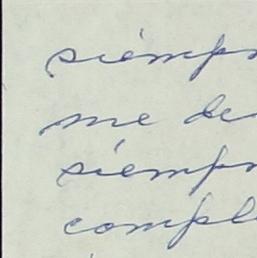 siempr
me de
siempr
compl